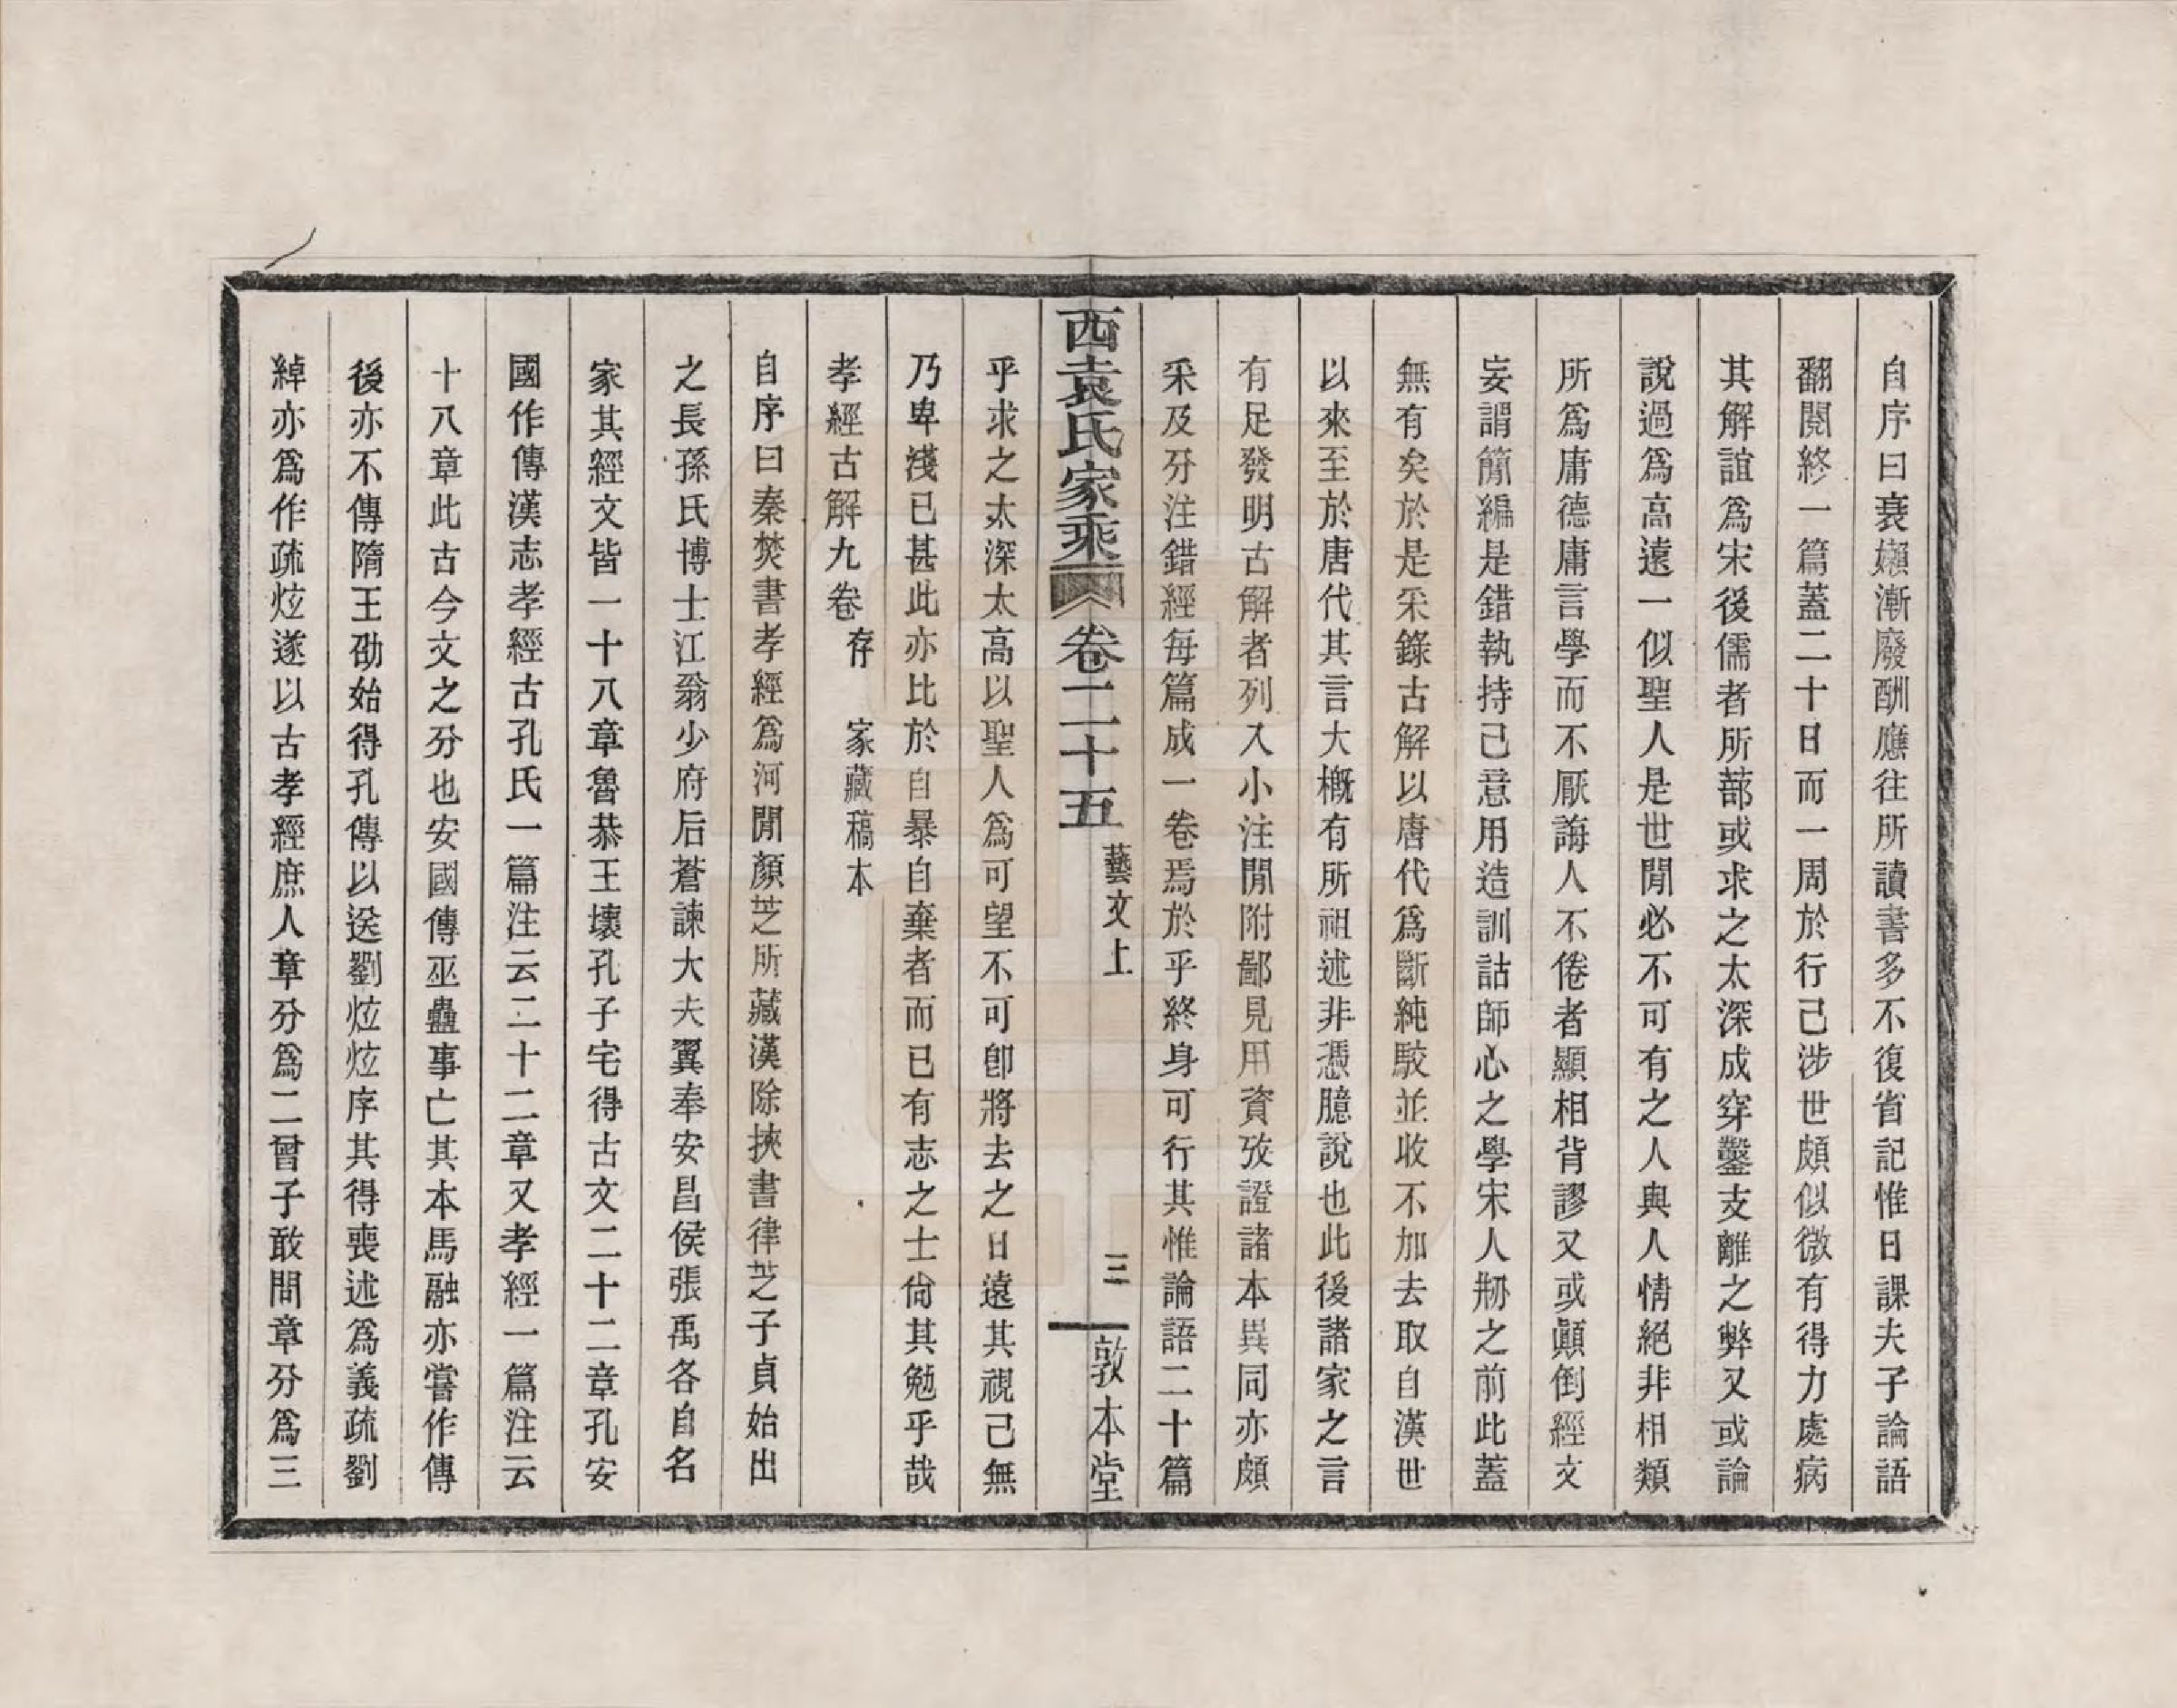 自序曰衰嬾漸廢酬應往所讀書多不復省記惟日課夫子論語
翻閱終一篇蓋二十日而一周於行己涉世頗似微有得力處病
其解誼爲宋後儒者所蔀或求之太深成穿鑿支離之弊又或論
說過爲高遠一似聖人是世閒必不可有之人與人情絕非相類
所爲庸德庸言學而不厭誨人不倦者顯相背謬又或顚倒經文
妄謂簡編是錯執持己意用造訓詁師心之學宋人剏之前此蓋
無有矣於是采錄古解以唐代爲斷純駮並收不加去取自漢世
以來至於唐代其言大槪有所祖述非憑臆說也此後諸家之言
有足發明古解者列入小注閒附鄙見用資攷證諸本異同亦頗
采及分注錯經每篇成一卷焉於乎終身可行其惟論語二十篇
西袁氏家乘 卷二十五 藝文上 三 敦本堂
乎求之太深太高以聖人爲可望不可卽將去之日遠其視己無
乃卑淺已甚此亦比於自暴自棄者而已有志之士尙其勉乎哉
孝經古解九卷 存 家藏稿本
自序曰秦焚書孝經爲河閒顏芝所藏漢除挾書律芝子貞始出
之長孫氏博士江翁少府后蒼諫大夫翼奉安昌侯張禹各自名
家其經文皆一十八章魯恭王壞孔子宅得古文二十二章孔安
國作傳漢志孝經古孔氏一篇注云二十二章又孝經一篇注云
十八章此古今文之分也安國傳巫蠱事亡其本馬融亦嘗作傳
後亦不傳隋王劭始得孔傳以送劉炫炫序其得喪述爲義疏劉
綽亦爲作疏炫遂以古孝經庶人章分爲二曾子敢問章分爲三